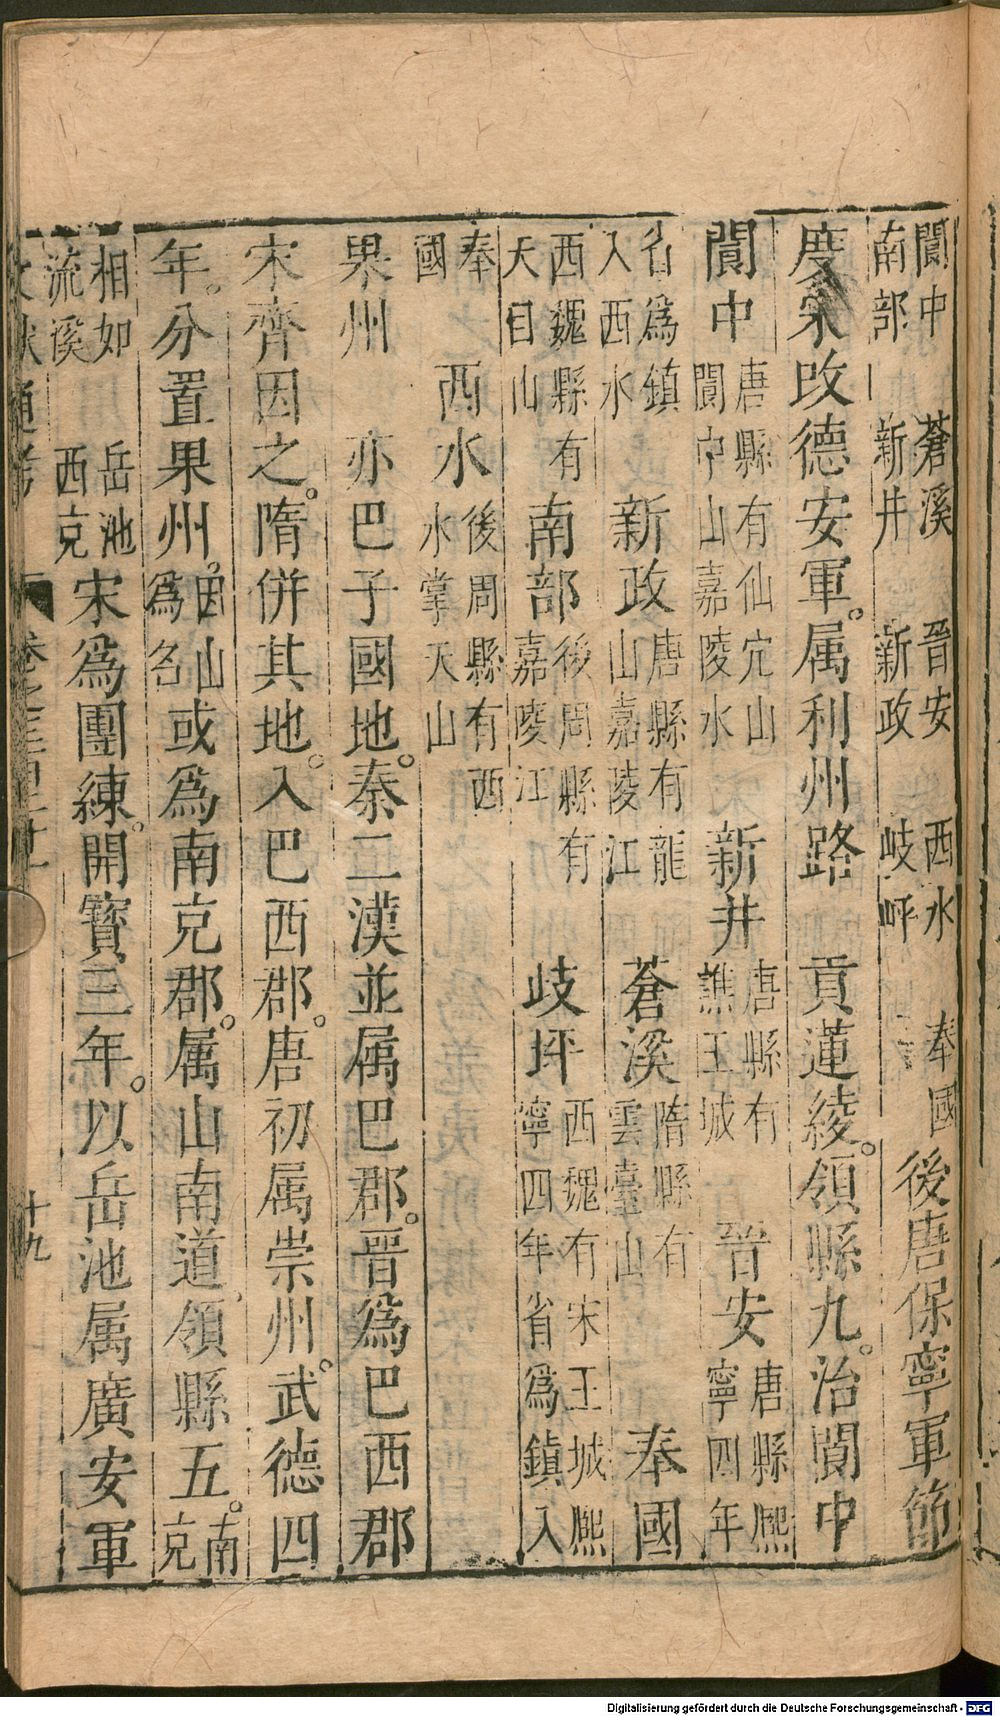 閬中　蒼溪　晉安　西水　奉國
南部　新井　新政　岐呯
後唐保寧軍節
度宋改德安軍。属利州路　貢蓮綾。領縣九。治閬中
閬中　唐縣有仙宂山閬中山嘉陵水　新井　唐縣有譙王城　晉安　唐縣熈寧四年
省為鎮入西水　新政　唐縣有龍山嘉陵江　蒼溪　隋縣有雲臺山　奉國
西魏縣有天目山　南部　後周縣有嘉陵江　岐坪　西魏有宋王城熈寧四年省爲鎮入
奉國　西水　後周縣有西水掌天山
果州　亦巴子國地。秦二漢並属巴郡。晋爲巴西郡
宋齊因之。隋併其地。入巴西郡。唐初属崇州。武德四
年。分置果州。因山爲名或爲南克郡。属山南道，領縣五。南克
相如　岳池
流溪　西克
宋爲團練。開寳三年。以岳池属廣安軍
文献通考　卷之三百廿一　十九
Digitalisierung gefördert durch die Deutsche Forschungsgemeinschaft - DFG